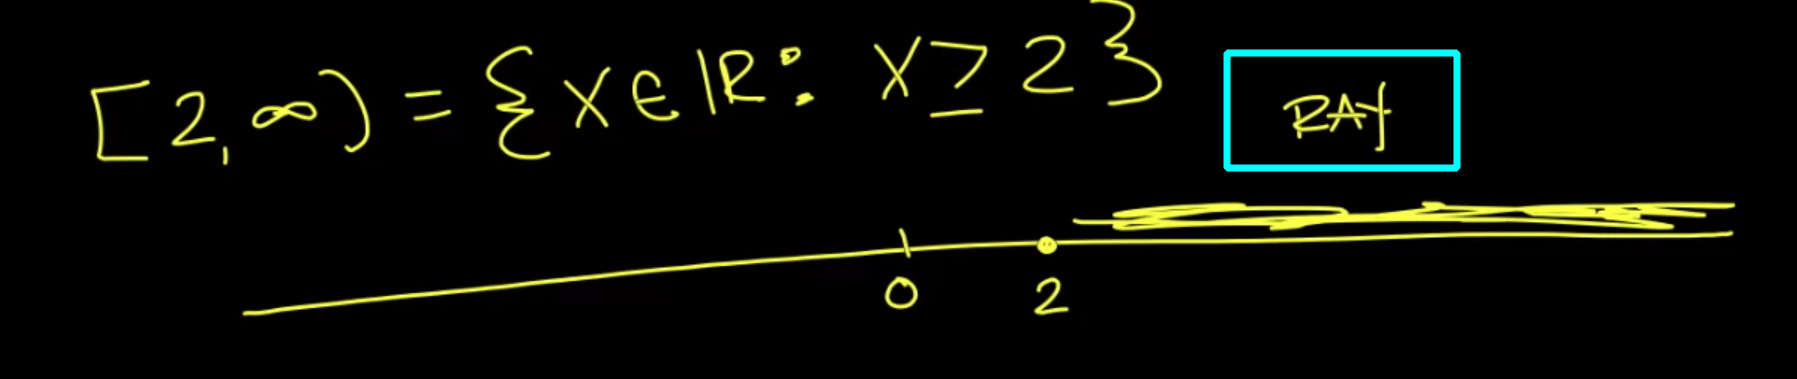 [2, ∞) = {x ∈ ℝ : x ≥ 2}
RAY
0 2